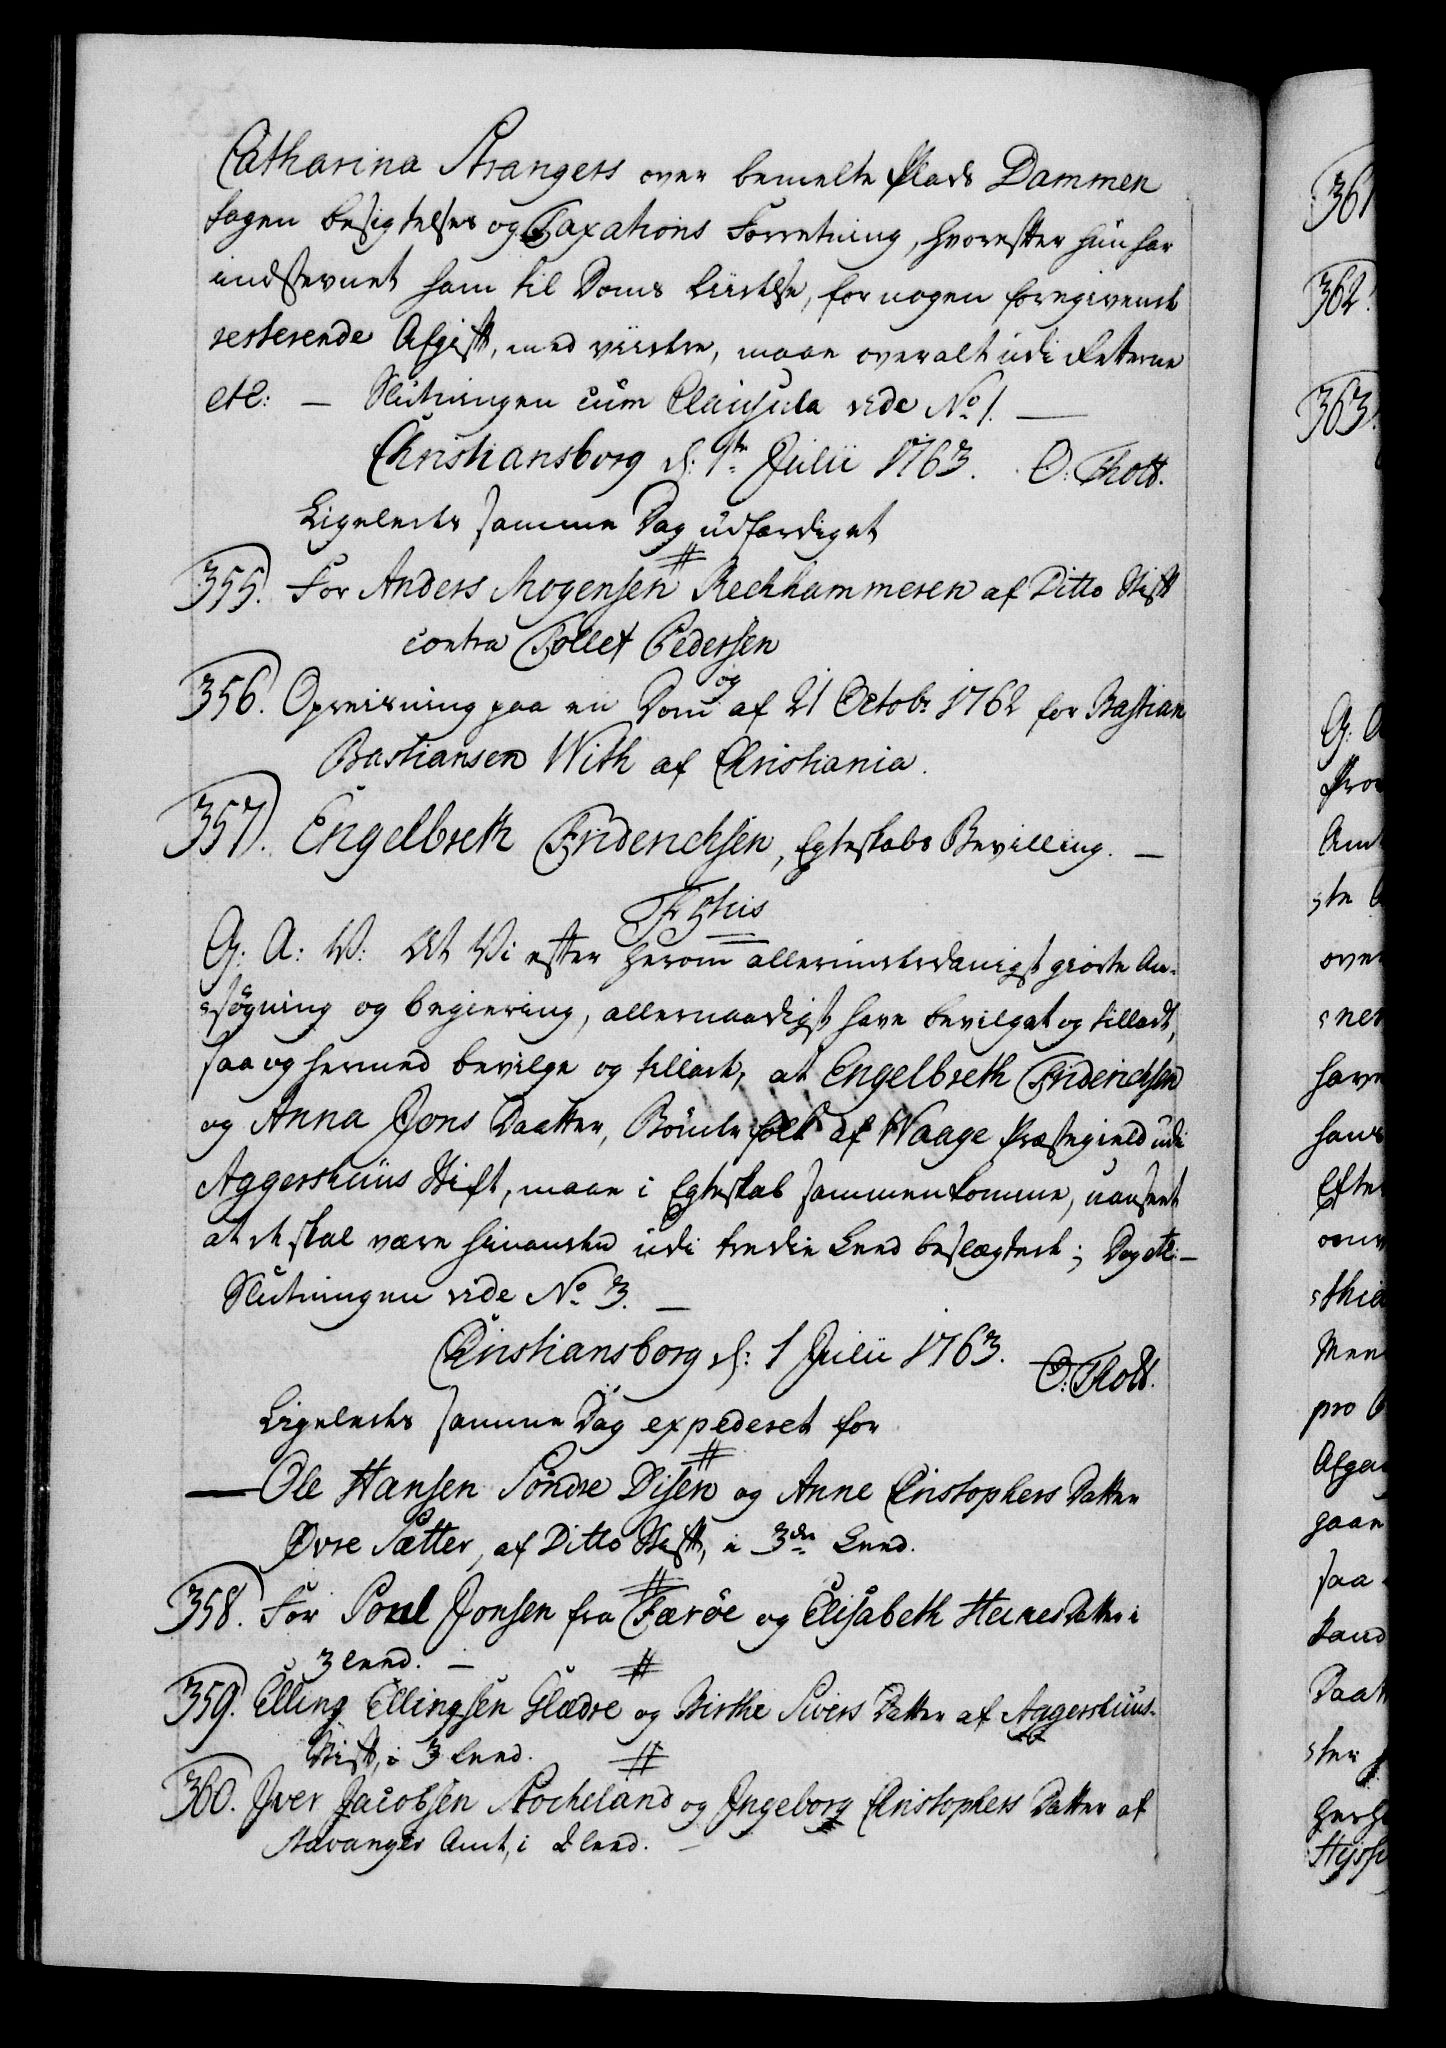 Catharina Strangers over bemelte Plads Dammen
tagen besigtelses og Taxations Forretning, hvorefter hun har
indstevnet ham til Doms Liidelse, for nogen foregivende
resterende Afgift, med viidere, maae overalt udi Retterne
etc: — Slutningen cum Clausula vide No 1. —
Christiansborg d: 1te Julii 1763. O: Thott.
Ligeledes samme Dag udfærdiget
355. For Anders Mogensen Rechhammeren af Ditto Stift
contra Tollef Pedersen
og
356. Opreisning paa en Dom af 21 Octobr 1762 for Bastian
Bastiansen With af Christiania.
357. Engelbreth Friderichsen, Egteskabs Bevilling. —
G: A: W: At Vi efter herom allerunderdanigst giorte An-
søgning og begiering, allernaadigst have bevilget og tilladt,
saa og hermed bevilge og tillade, at Engelbreth Friderichsen
og Anna Jons Daatter, Bøndefolk af Waage Præstegield udi
Aggershuus Stift, maae i Egteskab sammenkomme, uanseet
at de skal være hinanden udi tredie Leed beslægtede; Dog etc: —
Slutningen vide No 3. —
Christiansborg d: 1 Julii 1763. O: Thott.
Ligeledes samme Dag expederet for
— Ole Hansen Søndre Disen og Anne Christophers Datter
Øvre Sætter, af Ditto Stift, i 3die Leed.
358. For Poul Jonsen fra Færöe og Elisabeth Heines Datter i
3 Leed. —
359. Elling Ellingsen Glædre og Birthe Sivers Datter af Aggershuus-
Stift, i 3 Leed.
360. Iver Jacobsen Stocheland og Ingeborg Christophers Datter af
Stavanger Amt, i 2 Leed. —
361
362.
363.